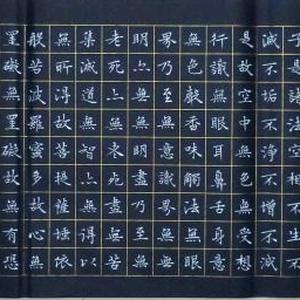 子是諸法空相不生不
滅不垢不淨不增不減
是故空中無色無受想
行識無眼耳鼻舌身意
無色聲香味觸法無眼
界乃至無意識界無無
明亦無無明盡乃至無
老死亦無老死盡無苦
集滅道無智亦無得以
無所得故菩提薩埵依
般若波羅蜜多故心無
罣礙無罣礙故無有恐